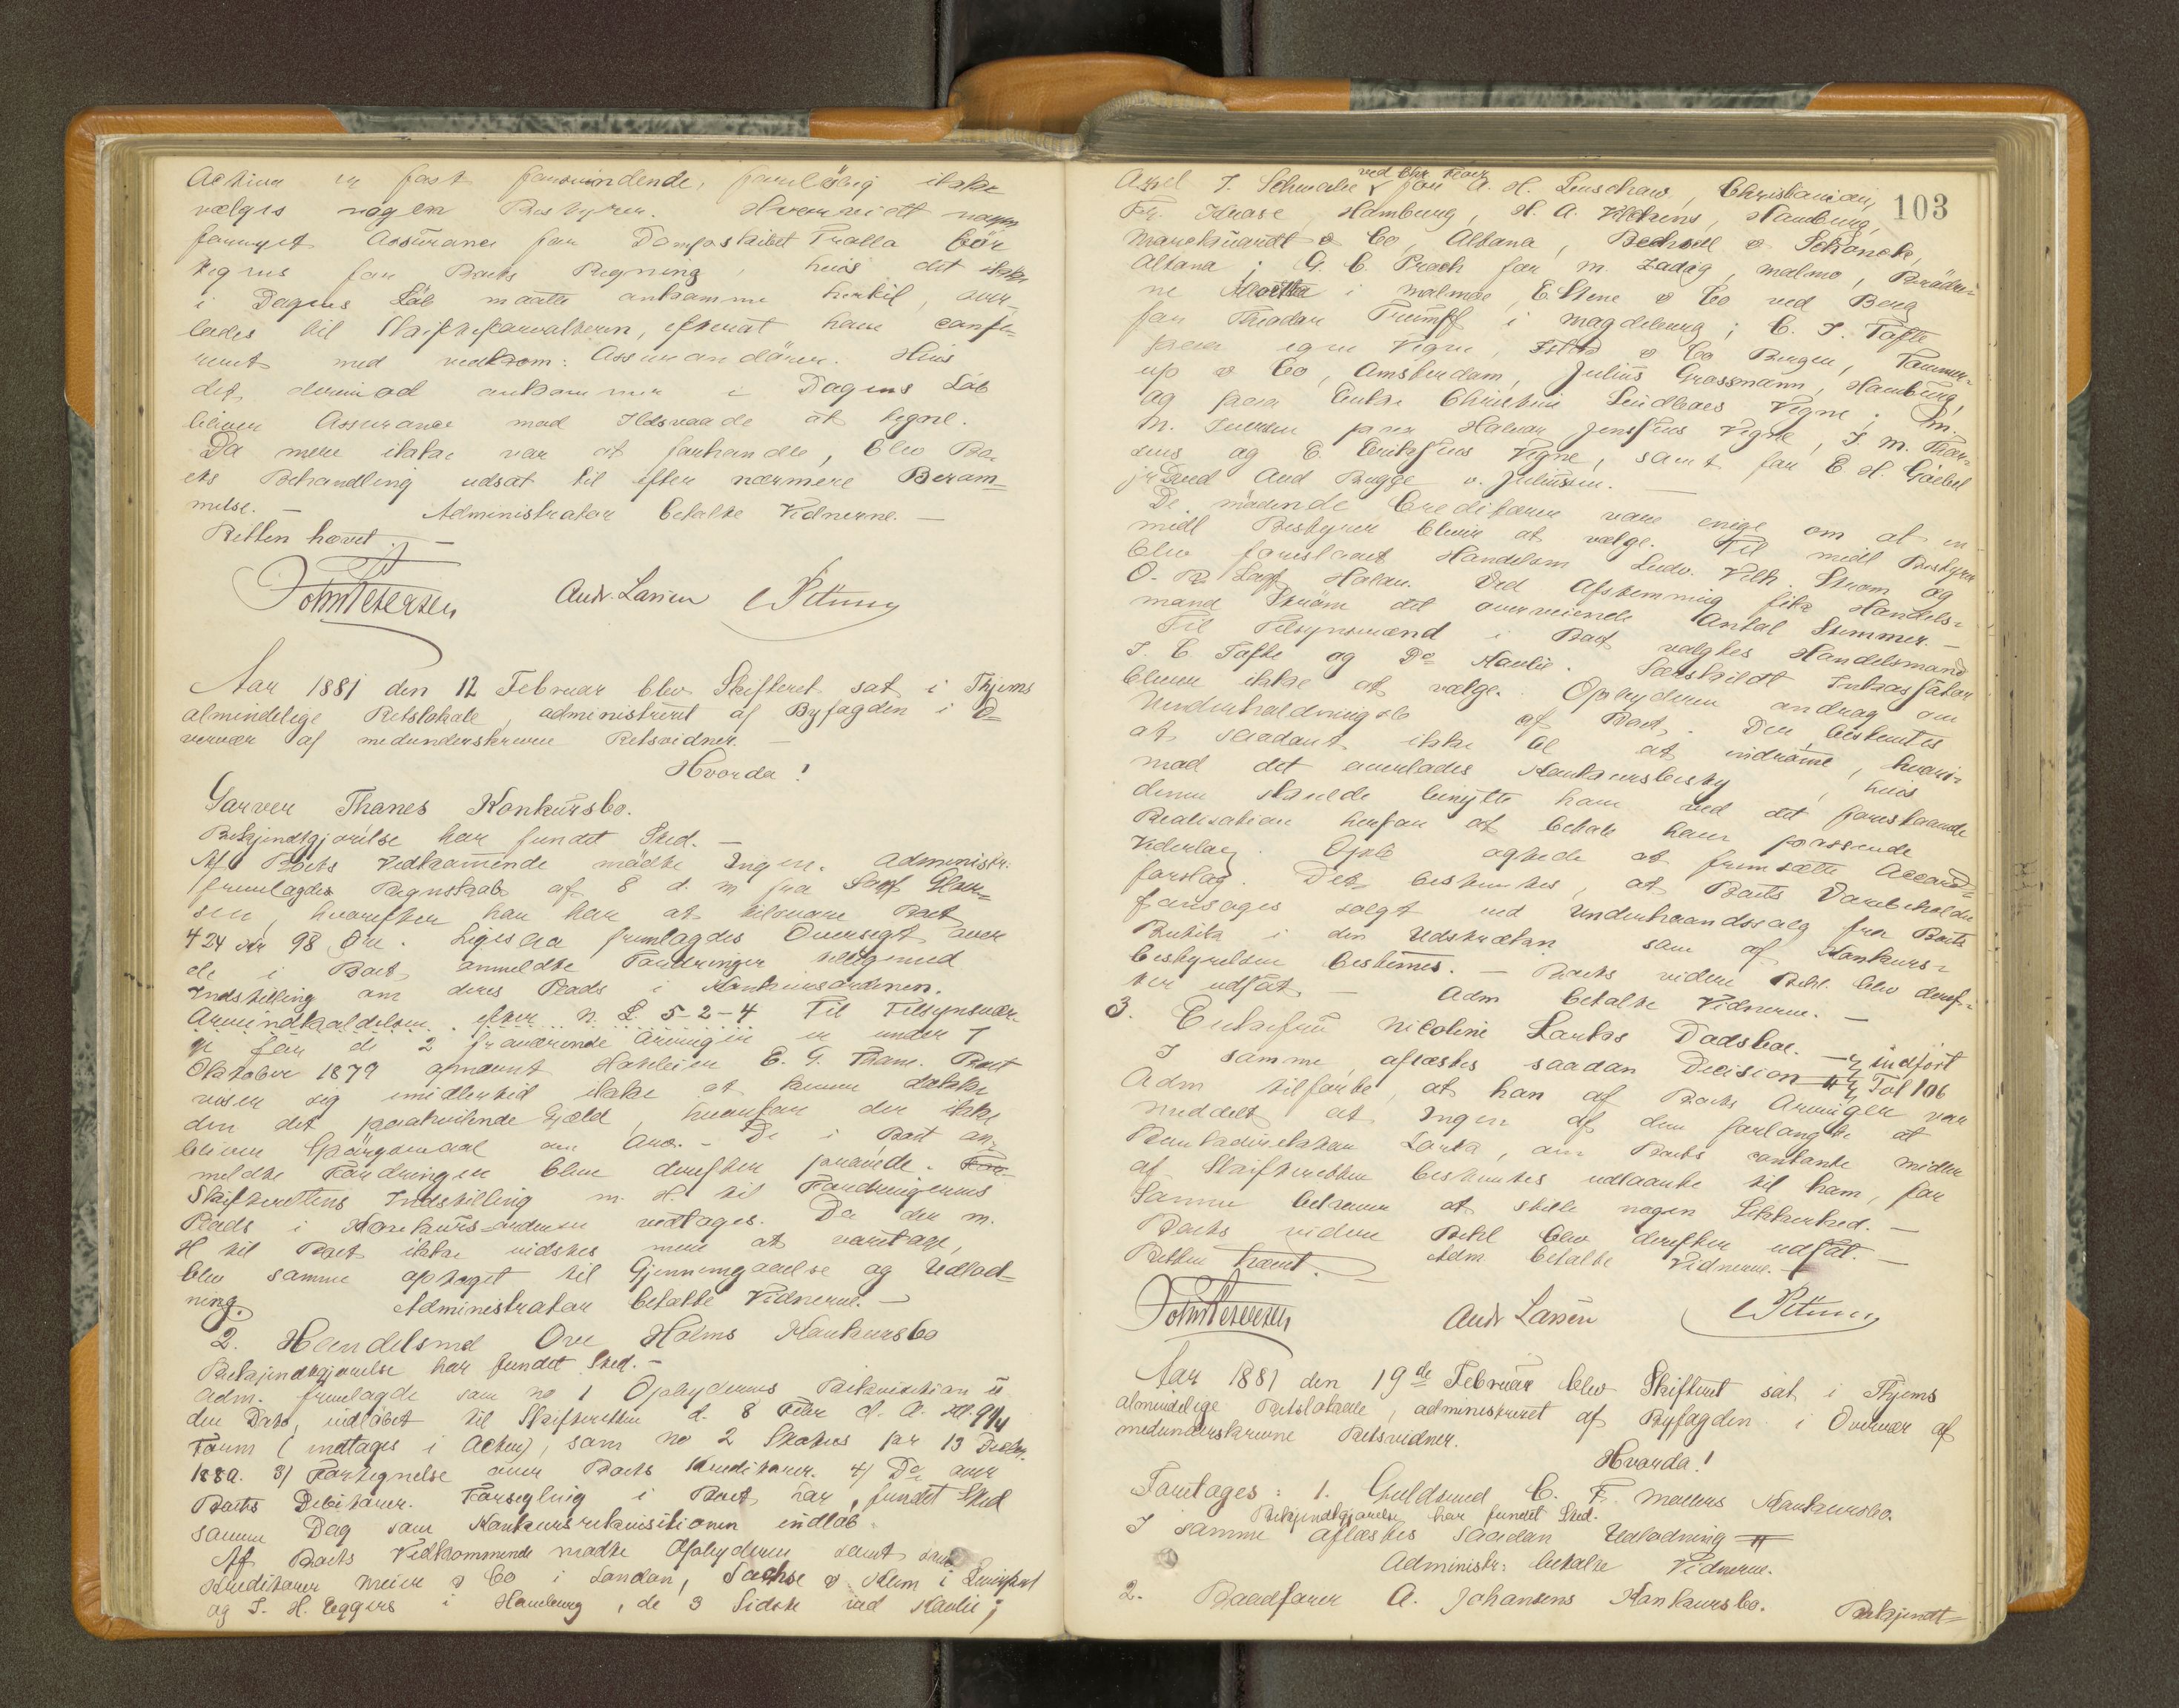 Activa er fast forsvindende, foreløbig ikke
vælges nogen Bestyrer. Hvorvidt nogen
fornyet Assurance for Dampskibet Tralla bör
tegnes for Boets Regning, hvis det ikke
i Dagens Löb maatte ankomme hertil, over-
lades til Skifteforvalteren, efterat have confe-
reret med vedkom: Assurandören. Hvis
det derimod ankommer i Dagens Löb
bliver Assurance mod Ildsvaade at tegne.
Da mere ikke var at forhandle, blev Bo-
ets Behandling udsat til efter nærmere Beram-
melse. — Administrator betalte Vidnerne. —
Retten hævet. —
John Petersen Andr. Larsen
Aar 1881 den 12 Februar blev Skifteret sat i Thjems
almindelige Retslokale, administreret af Byfogden i O-
vervær af medunderskrevne Retsvidner. —
Hvorda!
Garver Thanes Konkursbo.
Bekjendtgjörelse har fundet Sted. —
Af Boets Vedkommende mödte Ingen. Administr:
fremlagdes Regnskab af 8 d. M. fra Sagf. Glør-
sen, hvorefter han har at tilsvare Boet
424 Kr 98 Øre. Ligesaa fremlagdes Oversigt over
de i Boet anmeldte Fordringer tilligemed
Indstilling om deres Plads i Konkursordenen.
Arveindkaldelsen efter N. L. 5-2-4 Til Tilsynsvær-
ge for de 2 fraværende Arvinger er under 7
Oktober 1879 opnævnt E. G. Thane. Boet
viser sig imidlertid ikke at kunne dække
den det paahvilende Gjæld, hvorfor der ikke
bliver Spörgsmaal om Arv. — De i Boet an-
meldte Fordringer blev derefter prøvede.
Skifterettens Indstilling m. H. til Fordringernes
Plads i Konkurs-ordenen vedtages. Da der m.
H til Boet ikke vidstes mere at varetage,
blev samme optaget til Gjennemgaaelse og Udlod-
ning. Administrator betalte Vidnerne. —
2. Handelsmd Ove Holms Konkursbo
Bekjendtgjörelse har fundet Sted. —
Adm. fremlagde som no 1 Opbyderens Rekvisition u
den Dato, indløbet til Skifteretten d. 8 Febr d. A. Kl. 9 1/4
Form (indtages i Acten), som No 2 Status pr 13 Decbr.
1880. 3/ Fortegnelse over Boets Kreditorer. 4/ Do over
Boets Debitorer. Forsegling i Boet har fundet Sted
samme Dag som Konkursrekvisitionen indløb.
Af Boets Vedkommende mødte Opbyderen samt som
Kreditorer Meier & Co i London, Sachse & Klem i
og J. H. Eggers i Hamburg, de 3 Sidste ved Kavlie;
103
ved Chr. Koer
Axel T. Schmalie for A. H. Leuschow, Christiania,
Fr. Klease Hamburg, H. A. Hamburg,
Marckuardt & Co, Altona, Bechsell & Schanck,
Altona; G. C. Proch for M. Zadig, Malmø, Brødre-
ne i Malmøe, E. Stene & Co ved Berg
for Theodor Trumpf i Magdeburg; C. J. Tofte
paa egne Vegne, & Co Bergen, Kammer-
up & Co, Amsterdam, Julius Grossmann, Hamburg,
og paa Enke Christine Lindboes Vegne; M.
M. Iversen paa Halvor Jensens Vegne, J. M. Thor-
sens og E. Eriksens Vegne, samt for E. H. Goebel
jr Aud Bugge v. Juliussen. —
De mødende Creditorer vare enige om at en
midl Bestyrer bliver at vælge. Til midl Bestyrer
blev foreslaaet Handelsm Ludv. Vilh. Strøm og
O. R. Sagf Holau. Ved Afstemning fik Handels-
mand Strøm det overveiende Antal Stemmer. —
Til Tilsynsmænd i Boet valgtes Handelsmand
J. C. Tofte og Do Kavlie. Særskildt Inkassator
bliver ikke at vælge. Opbyderen androg om
Underholdningsb af Boet. Der besluttes
at saadant ikke bl at indrømme, hvori-
mod det overlades Konkursbesty , hvis
denne skulde benytte ham ved det forestaaende
Realisation herfor at betale ham passende
Vederlag. Opb agtede at fremsætte Accord-
forslag. Det bestemtes, at Boets Varebeholdn
forsøges solgt ved Underhaandssalg fra Boets
Butik i den Udstrækn som af Konkurs-
bestyrelsen bestemes. — Boets videre Behl. blev deref-
ter udsat — Adm betalte Vidnerne. —
3. Enkefru Nicoline Larkas Dødsbo. — indført
I samme aflæstes saadan Decision # Fol 106
Adm tilførte, at han af Boets Arvinger var
meddelt at Ingen af dem forlangte at
Bankdirektør Lorck, om Boets contante Midler
af Skifteretten besluttes udlaante til ham, for
samme behøver at stille nogen Sikkerhed. —
Boets videre Behl blev derefter udsat. —
Retten hævet. — Adm betalte Vidnerne. —
John Petersen Andr Larsen
Aar 1881 den 19de Februar blev Skifteret sat i Thjems
almindelige Retslokale, administreret af Byfogden i Overvær af
medunderskrevne Retsvidner.
Hvorda!
Foretages: 1. Guldsmed C. F. Møllers Konkursbo.
Bekjendtgjørelse har fundet Sted.
I samme aflæstes saadan Udlodning #
Administr: betalte Vidnerne.
2. Baadfører A. Johansens Konkursbo. Bekjendt-